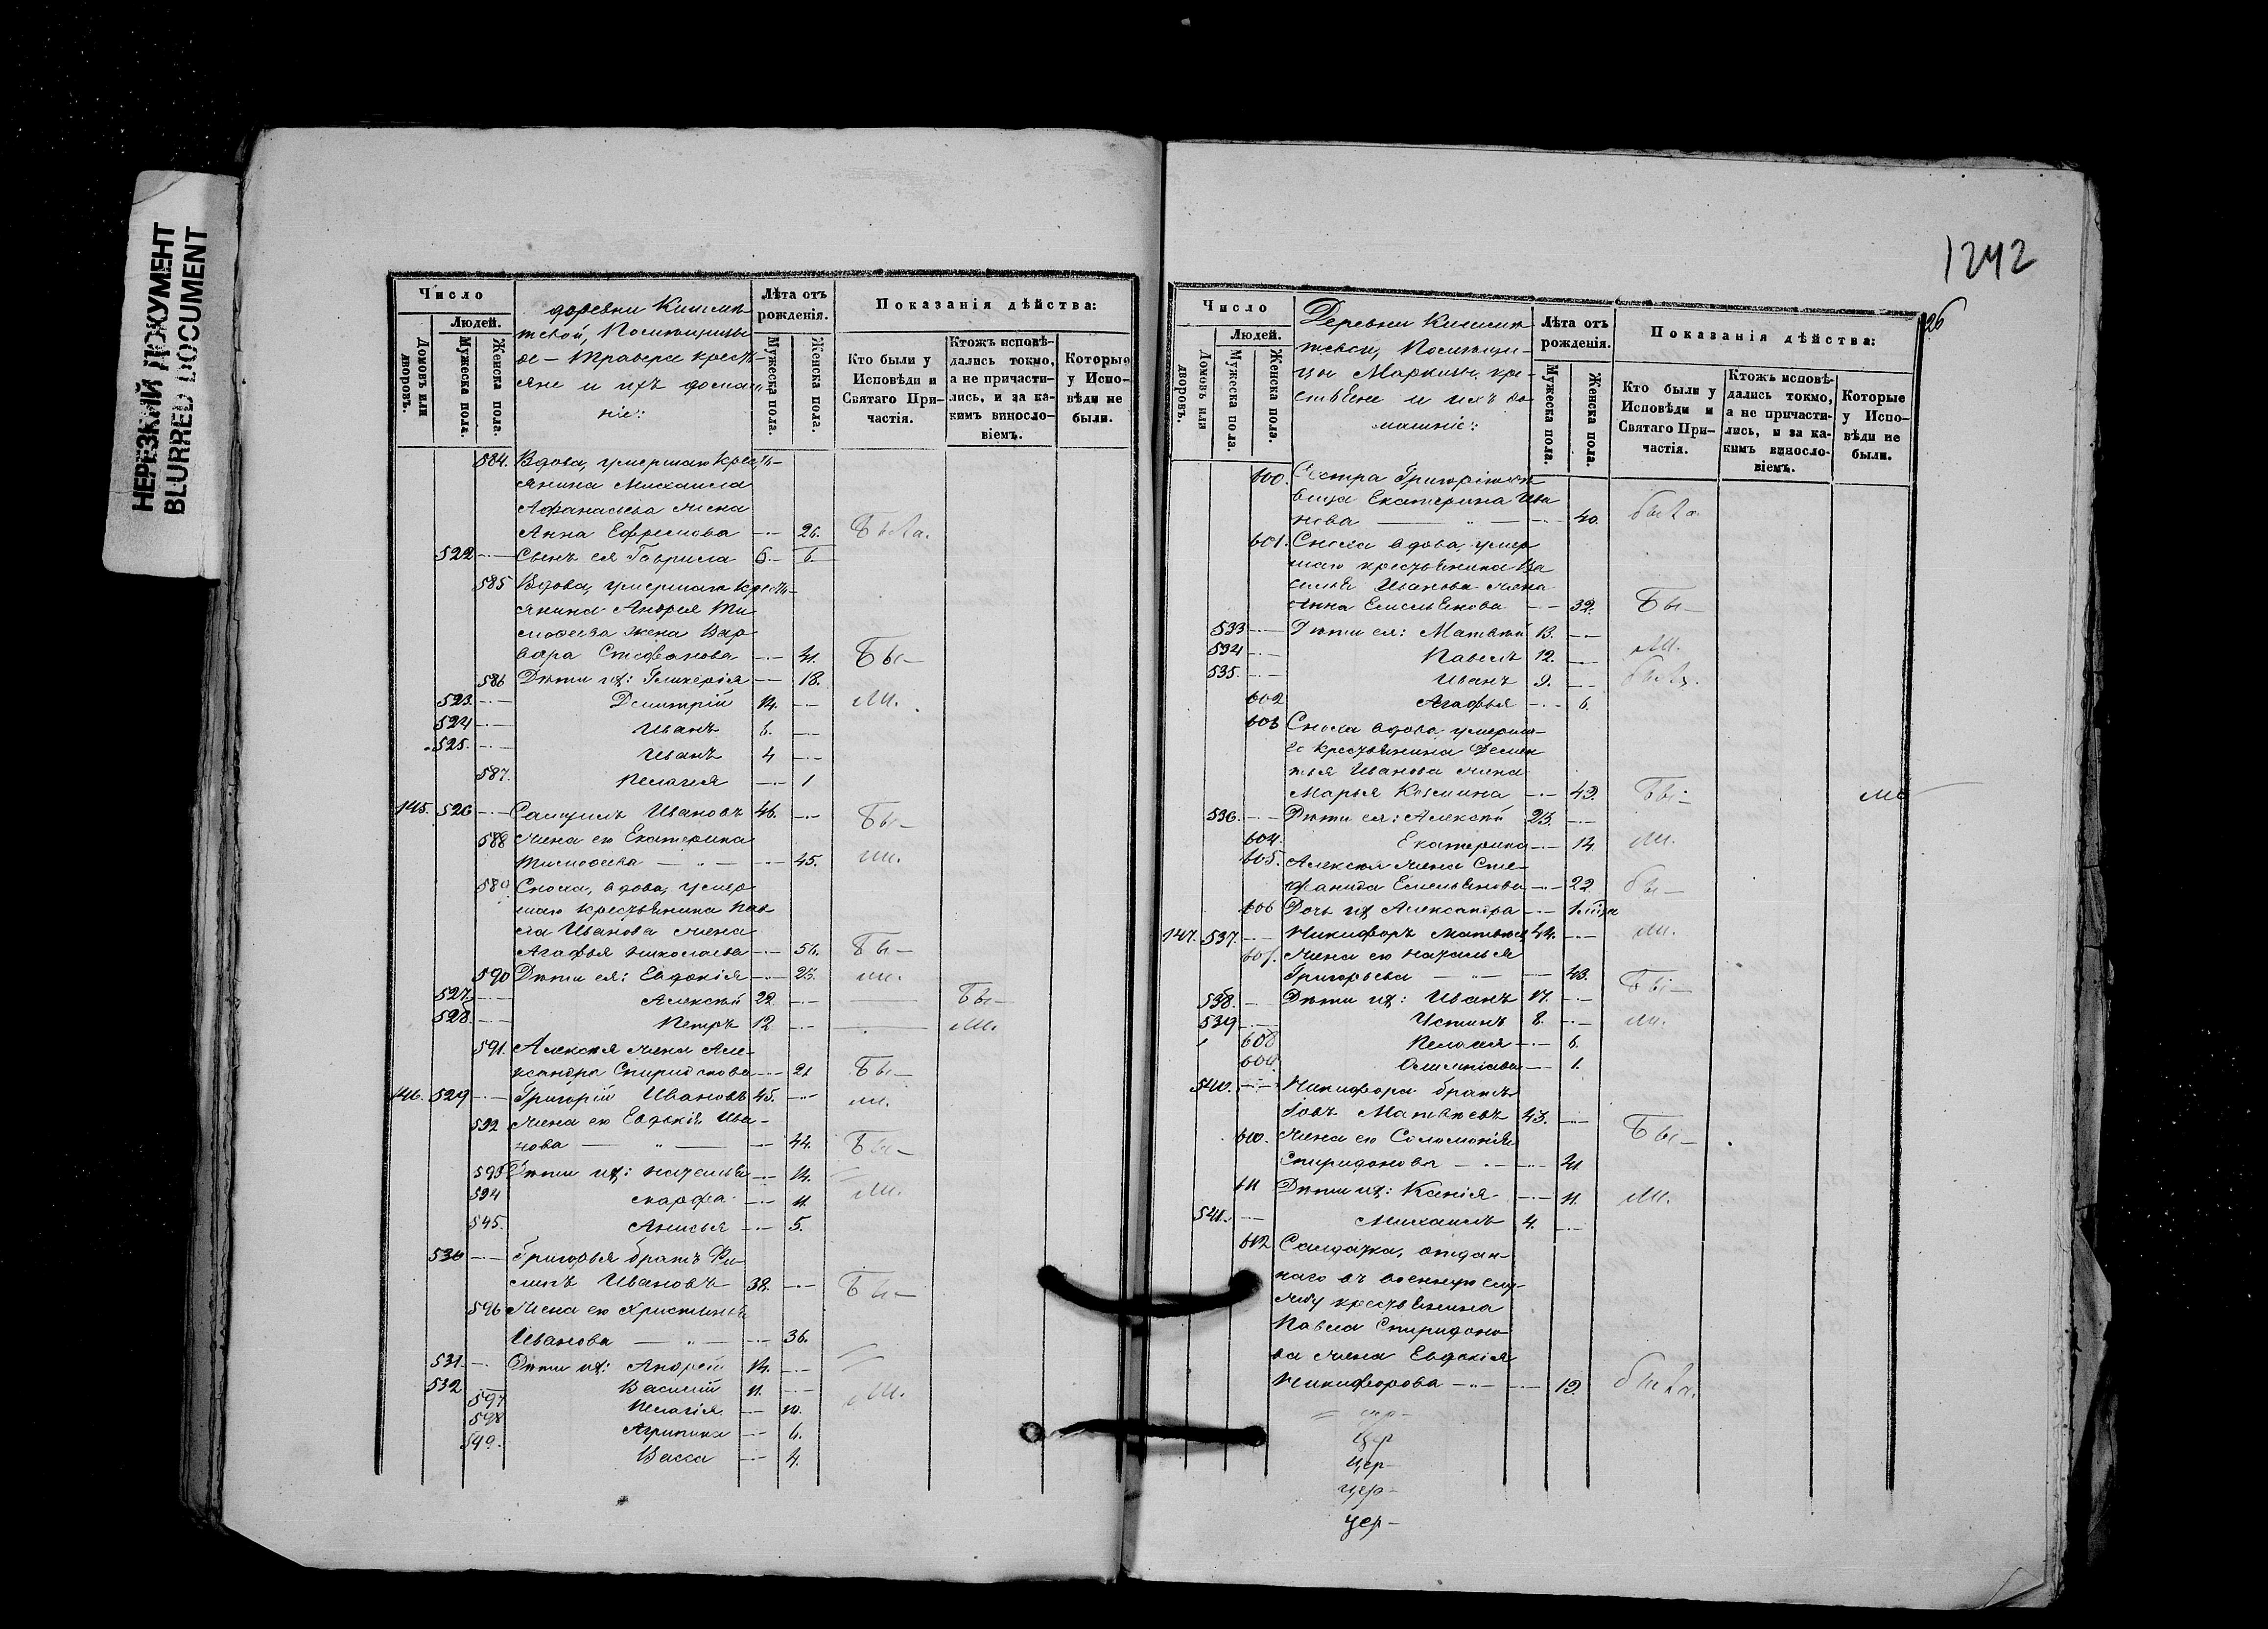 НЕРЕЗКИЙ ДОКУМЕНТ
BLURRED DOCUMENT
Число
Людей.
Домовъ или дворовъ.
Мужеска пола.
Женска пола.
Лѣта отъ рожденія.
Мужеска пола.
Женска пола.
Показанія дѣйства:
Кто были у Исповѣди и Святаго Причастія.
Ктожъ исповѣдались токмо, а не причастились, и за какимъ винословіемъ.
Которые у Исповѣди не были.
584. Вдова, умершаго кресть-
янина Михаила
Афанасьева жена
Анна Ефремова 26. Была.
522 Сынъ ея Гаврила 6.
585 Вдова, умершаго кресть-
янина Андрея Ти-
моѳеева жена Вар-
вара Стефанова 41. Бы-
586 Дѣти их: Гликерія 18.
523. Димитрій 14. ли.
524 Иванъ 6.
525. Иванъ 4
587. Пелагея 1
145. 526 Самуилъ Ивановъ 46. Бы-
588 Жена его Екатерина
Тимоѳеева 45. ли.
589 Сноха, вдова, умер-
шаго крестьянина Пав-
ла Иванова жена
Агафья Николаева 56. Бы-
590 Дѣти ея: Евдокія 23. ли.
527. Алексѣй 22. Бы-
528. Петръ 12. ли.
591. Алексѣя жена Але-
ксандра Спиридонова 21 Бы-
146. 529 Григорій Ивановъ 45. ли.
592 Жена его Евдокія Ива-
нова 44. Бы-
593 Дѣти их: Наталья 14.
594 Марфа 11. ли.
595. Анисья 5.
530 Григорья братъ Фи-
липъ Ивановъ 38. Бы-
596 Жена его Христинья
Иванова 36.
531 Дѣти их: Андрей 14.
532 Василій 11. ли.
597 Пелагія 10.
598 Агрипина 6.
599. Васса 4.
1242
26
Число
Людей.
Домовъ или дворовъ.
Мужеска пола.
Женска пола.
Деревни
кре-
стьяне и ихъ до-
машніе:
Лѣта отъ рожденія.
Мужеска пола.
Женска пола.
Показанія дѣйства:
Кто были у Исповѣди и Святаго Причастія.
Ктожъ исповѣдались токмо, а не причастились, и за какимъ винословіемъ.
Которые у Исповѣди не были.
600. Сестра
Екатерина Ива-
нова 40. была.
601. Сноха вдова, умер-
шаго крестьянина Ва-
силья Иванова жена
Анна Емельянова 32. Бы-
533 Дѣти ея: Матвѣй 13.
534 Павелъ 12. ли.
535. Иванъ 9.
602 Агафья 6.
603 Сноха вдова, умерша-
го крестьянина Демен-
тья Иванова жена
Марья Козмина 49. Бы-
536. Дѣти ея: Алексѣй 23.
604. Екатерина 14. ли.
605. Алексѣя жена Сте-
фанида Емельянова 22 бы-
606 Дочь их Александра
147. 537. Никифоръ Матвѣевъ 44. ли.
607. Жена его Наталья
Григорьева 43. Бы-
538. Дѣти их: Иванъ 17.
539 Устинъ 8. ли.
608 Пелагея 6.
609. 1.
540. Никифора братъ
Іовъ Матвѣевъ 43. Бы-
610. Жена его Соломонія
Спиридонова 41
611 Дѣти их: Ксенія 11. ли.
541. Михаилъ 4.
612 Солдатка, отдан-
наго въ военную слу-
жбу крестьянина
Павла Спиридоно-
ва жена Евдокія
Никифорова 19. была.
Цер-
Цер-
Цер-
Цер-